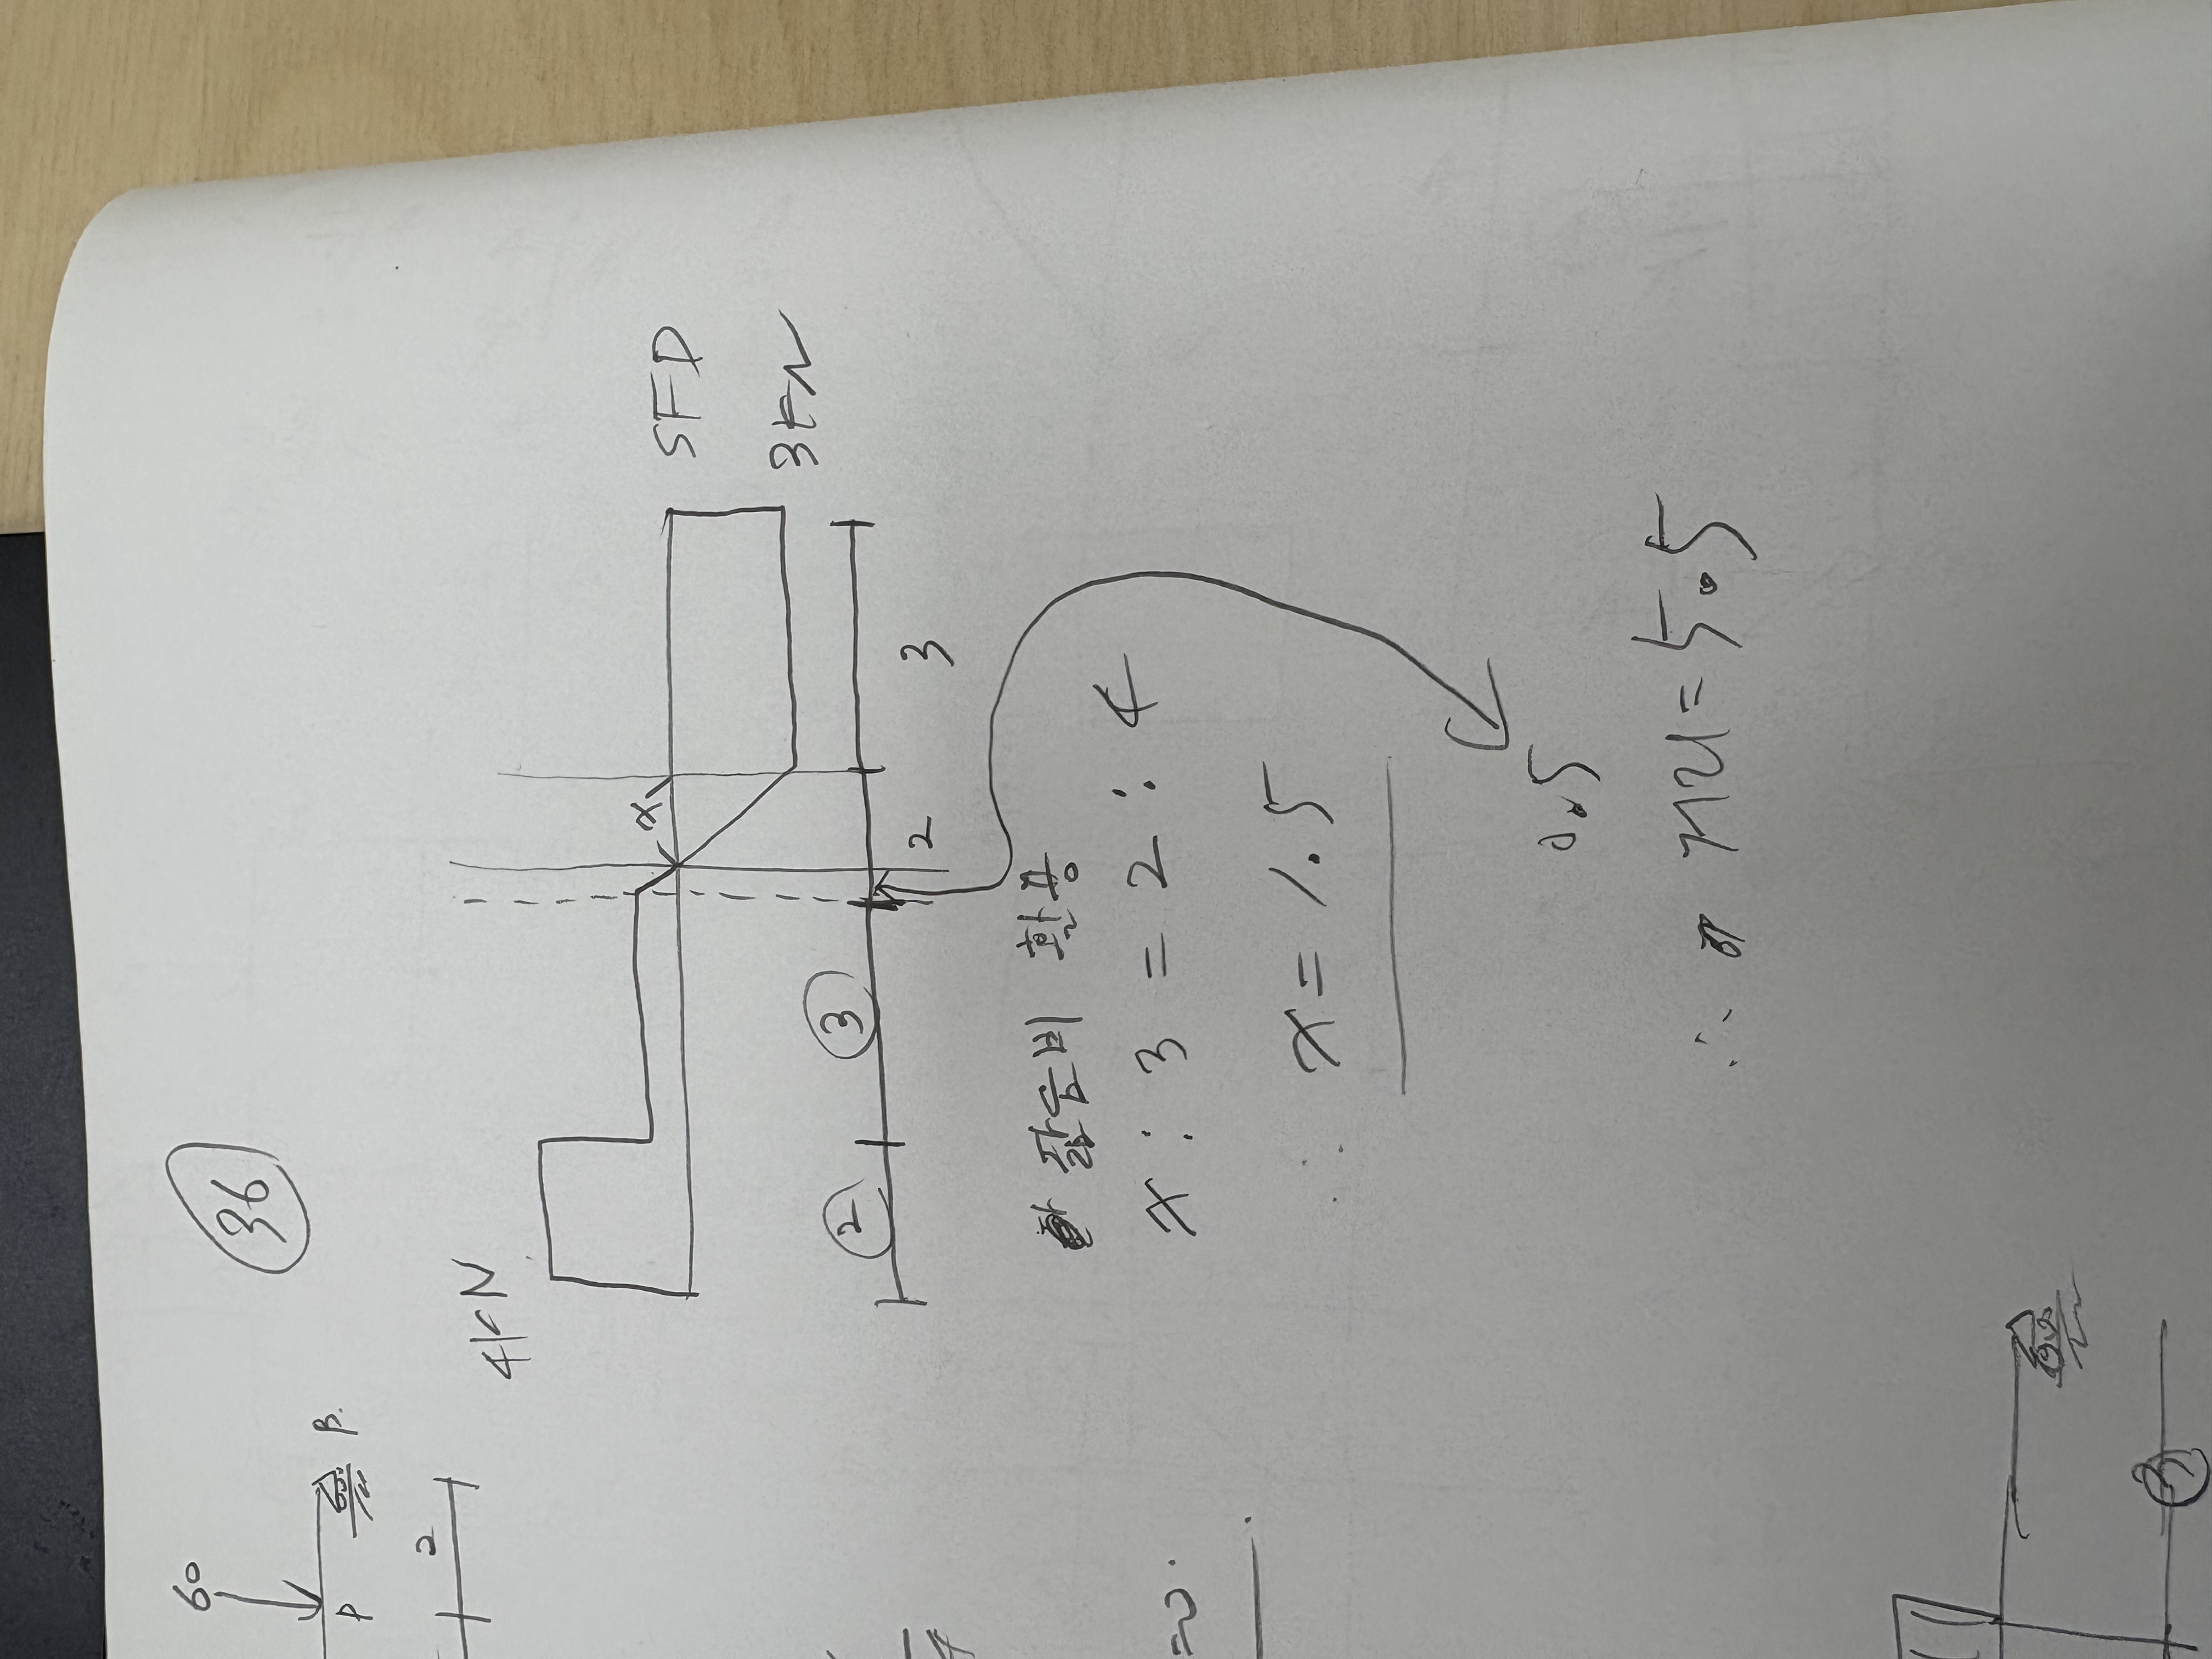 36
60
P
B.
2
4kN
SFD
3kN
x
② ③ 2 3
닮음비 활용
x : 3 = 2 : 4
∴ x = 1.5
0.5
∴ 거리 = 5.5
=0.
3